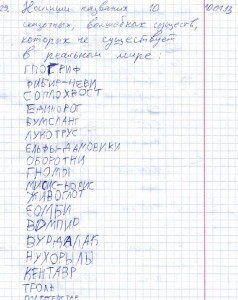 29. Напиши названия 10
сказочных, волшебных существ,
которых не существует
в реальном мире:
ГПОГРИФ
СОПЛОХВОСТ
ЕДИНОРОГ
БУМСЛАНГ
ЛУКОТРУС
ЕЛЬФЫ-ДАМОВИКИ
ОБОРОТНИ
ГНОМЫ
ЖИВОГЛОТ
ЗОМБИ
ВОМПИР
ВУРДАЛАК
НУХОРЫЛЫ
КЕНТАВР
ТРОЛЬ